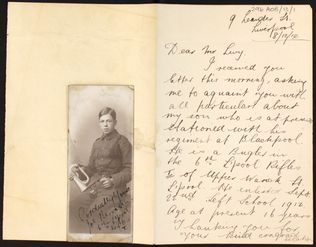 9 Leander St.
Liverpool
8/12/12
Dear Mr Levy
I received your
letter this morning, asking
me to aquaint you with
all particulars about
my son who is at present
stationed with his
regiment at Blackpool
He is a Bugler in
the 6th Lpool Rifles
of Upper Warwick St
Lpool He enlisted Sept
22nd Left School 1912
Age at present 16 years
Thanking you for
your kind